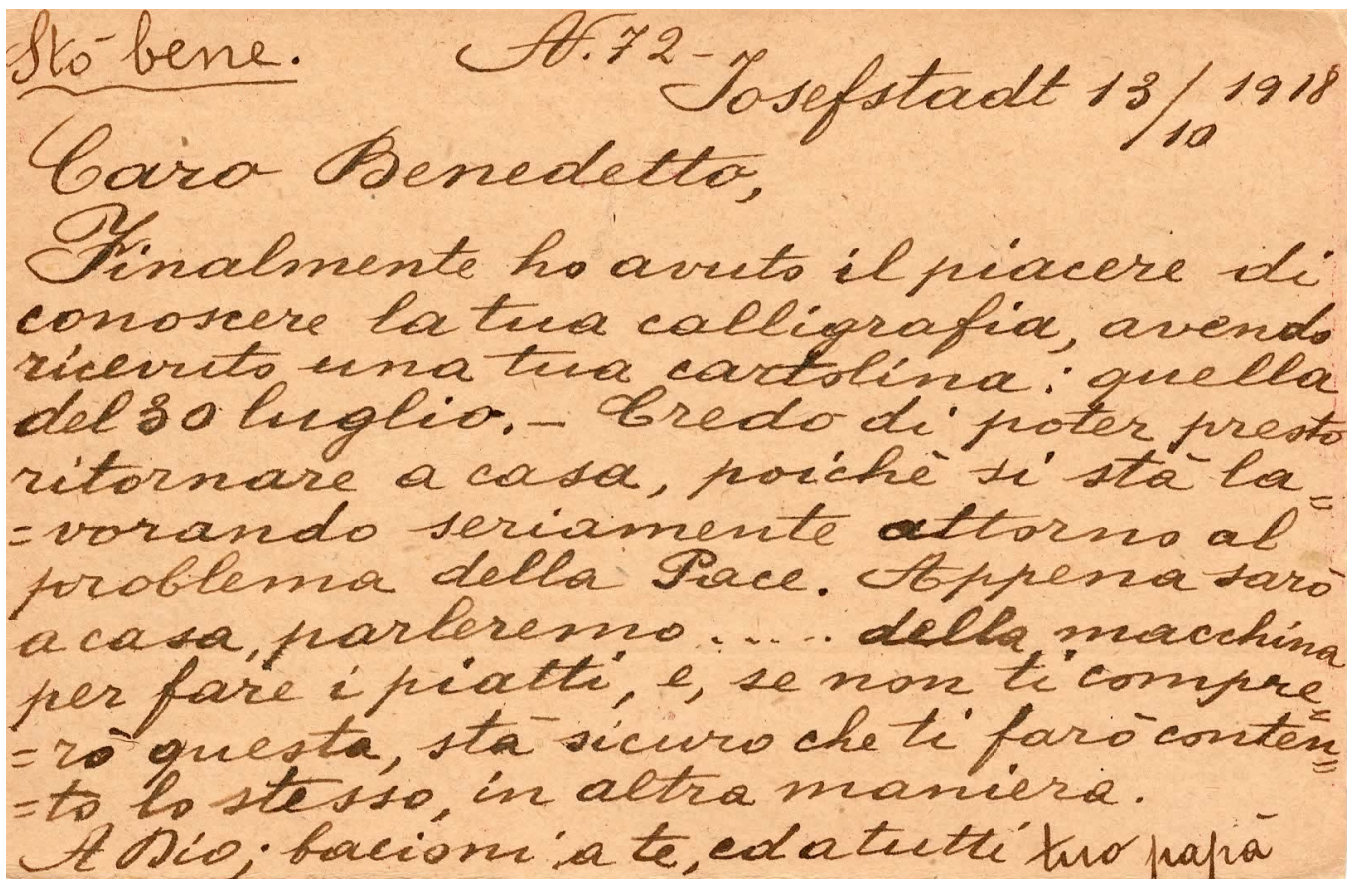 Stō bene. N. 72-
Josefstadt 13/10 1918
Caro Benedetto,
Finalmente ho avuto il piacere di
conoscere la tua calligrafia, avendo
ricevuto una tua cartolina: quella
del 30 luglio. - Credo di poter presto
ritornare a casa, poichē si stā la=
=vorando seriamente attorno al
problema della Pace. Appena sarō
a casa, parleremo ..... della macchina
per fare i piatti, e, se non ti compre=
=rō questa, stā sicuro che ti farō conten=
=to lo stesso, in altra maniera.
A Dio; bacioni a te, ed a tutti tuo papā